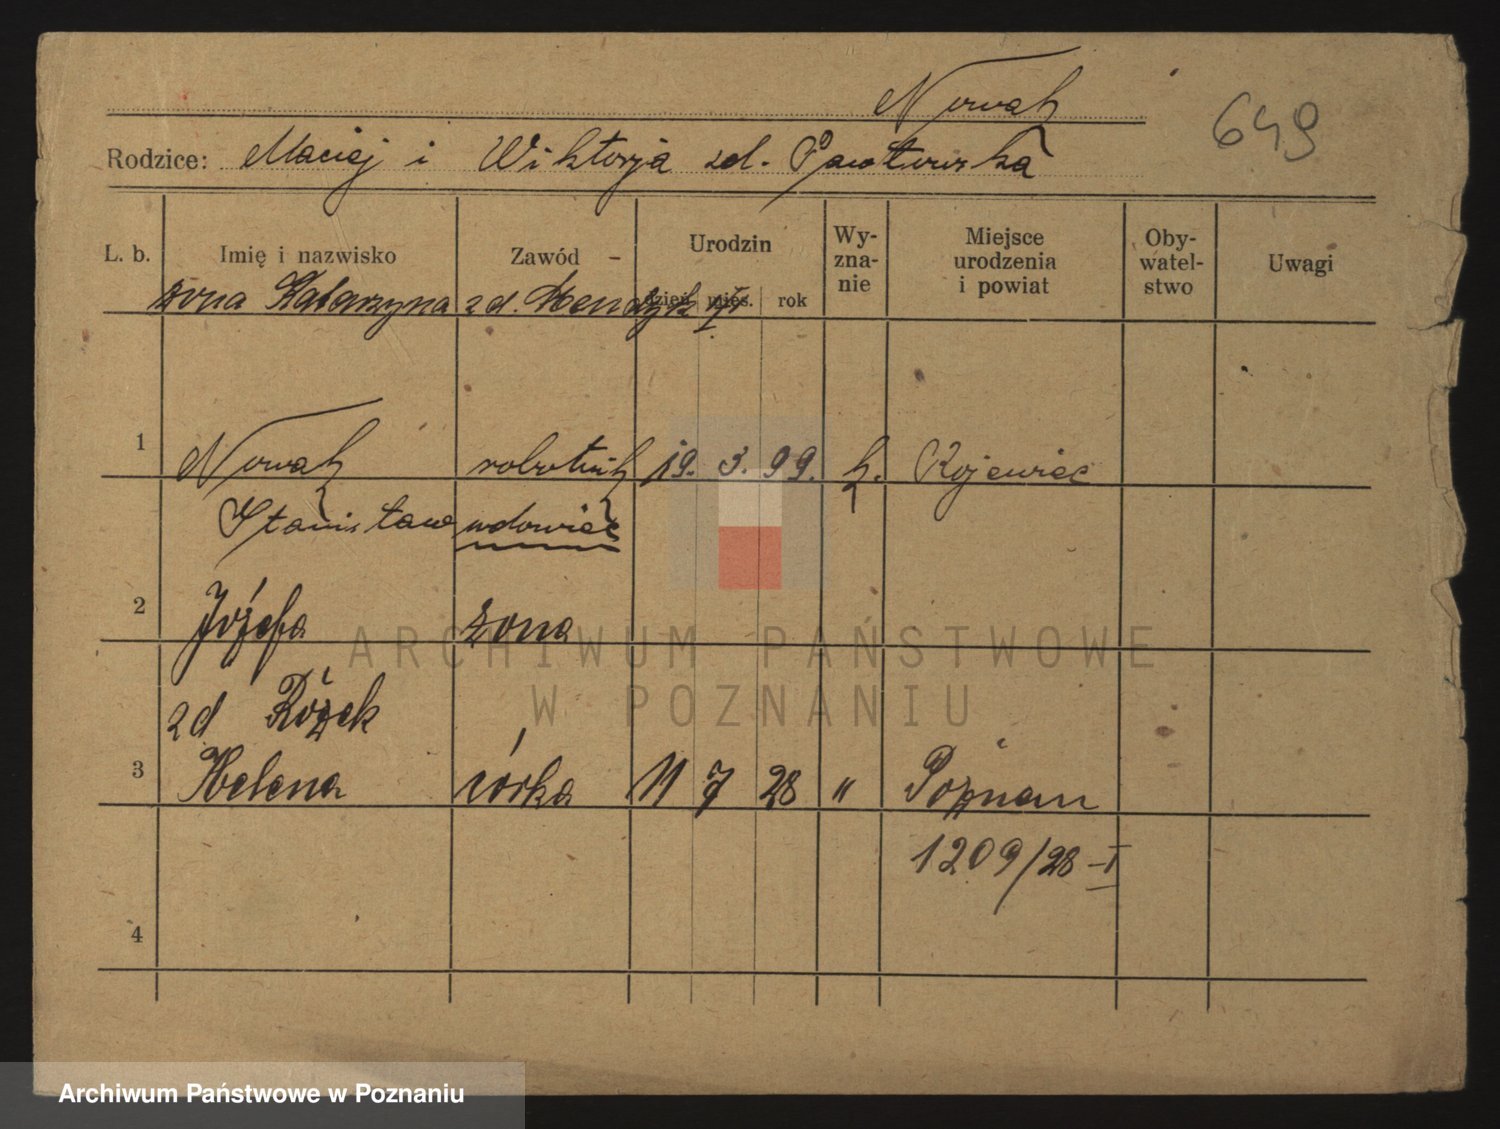 Nowak
649
Rodzice: Maciej i Wiktorja zd. Pawłowska
L. b. Imię i nazwisko Zawód Urodzin dzień mies. rok Wy-zna-nie Miejsce urodzenia i powiat Oby-watel-stwo Uwagi
żona Katarzyna zd.
1 Nowak robotnik 19. 3. 99. k. Kojewiec
Stanisław wdowiec
2 Józefa żona
zd Rożek
3 Helena córka 11 7 28 " Poznań
1209/28-I
4
ARCHIWUM PAŃSTWOWE
W POZNANIU
Archiwum Państwowe w Poznaniu